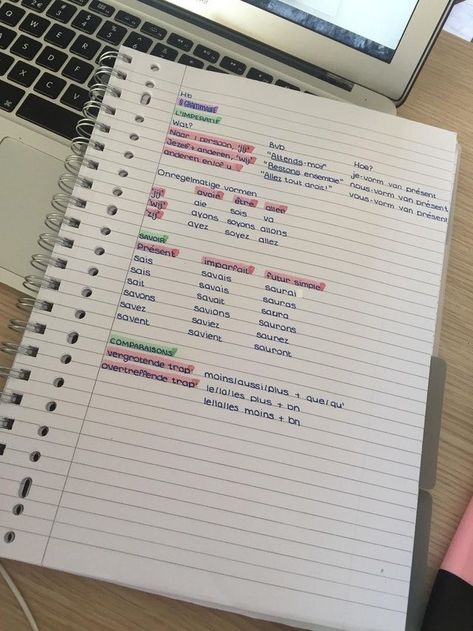 H6
8 GRAMMAIRE
L'IMPERATIF
Wat? Bvb Hoe?
Naar 1 persoon, 'jij' "Attends-moi" je-vorm van présent
Jezelf + anderen, 'wij' "Restons ensemble" nous-vorm van présent
anderen en/of u "Allez tout droit!" vous-vorm van présent
Onregelmatige vormen
avoir être aller
'jij' aie sois va
'wij' ayons soyons allons
'zij' ayez soyez allez
SAVOIR
Présent imparfait futur simple
sais savais saurai
sais savais sauras
sait savait saura
savons savions saurons
savez saviez saurez
savent savient sauront
COMPARAISONS
vergrotende trap moins/aussi/plus + que/qu'
overtreffende trap le/la/les plus + bn
le/la/les moins + bn